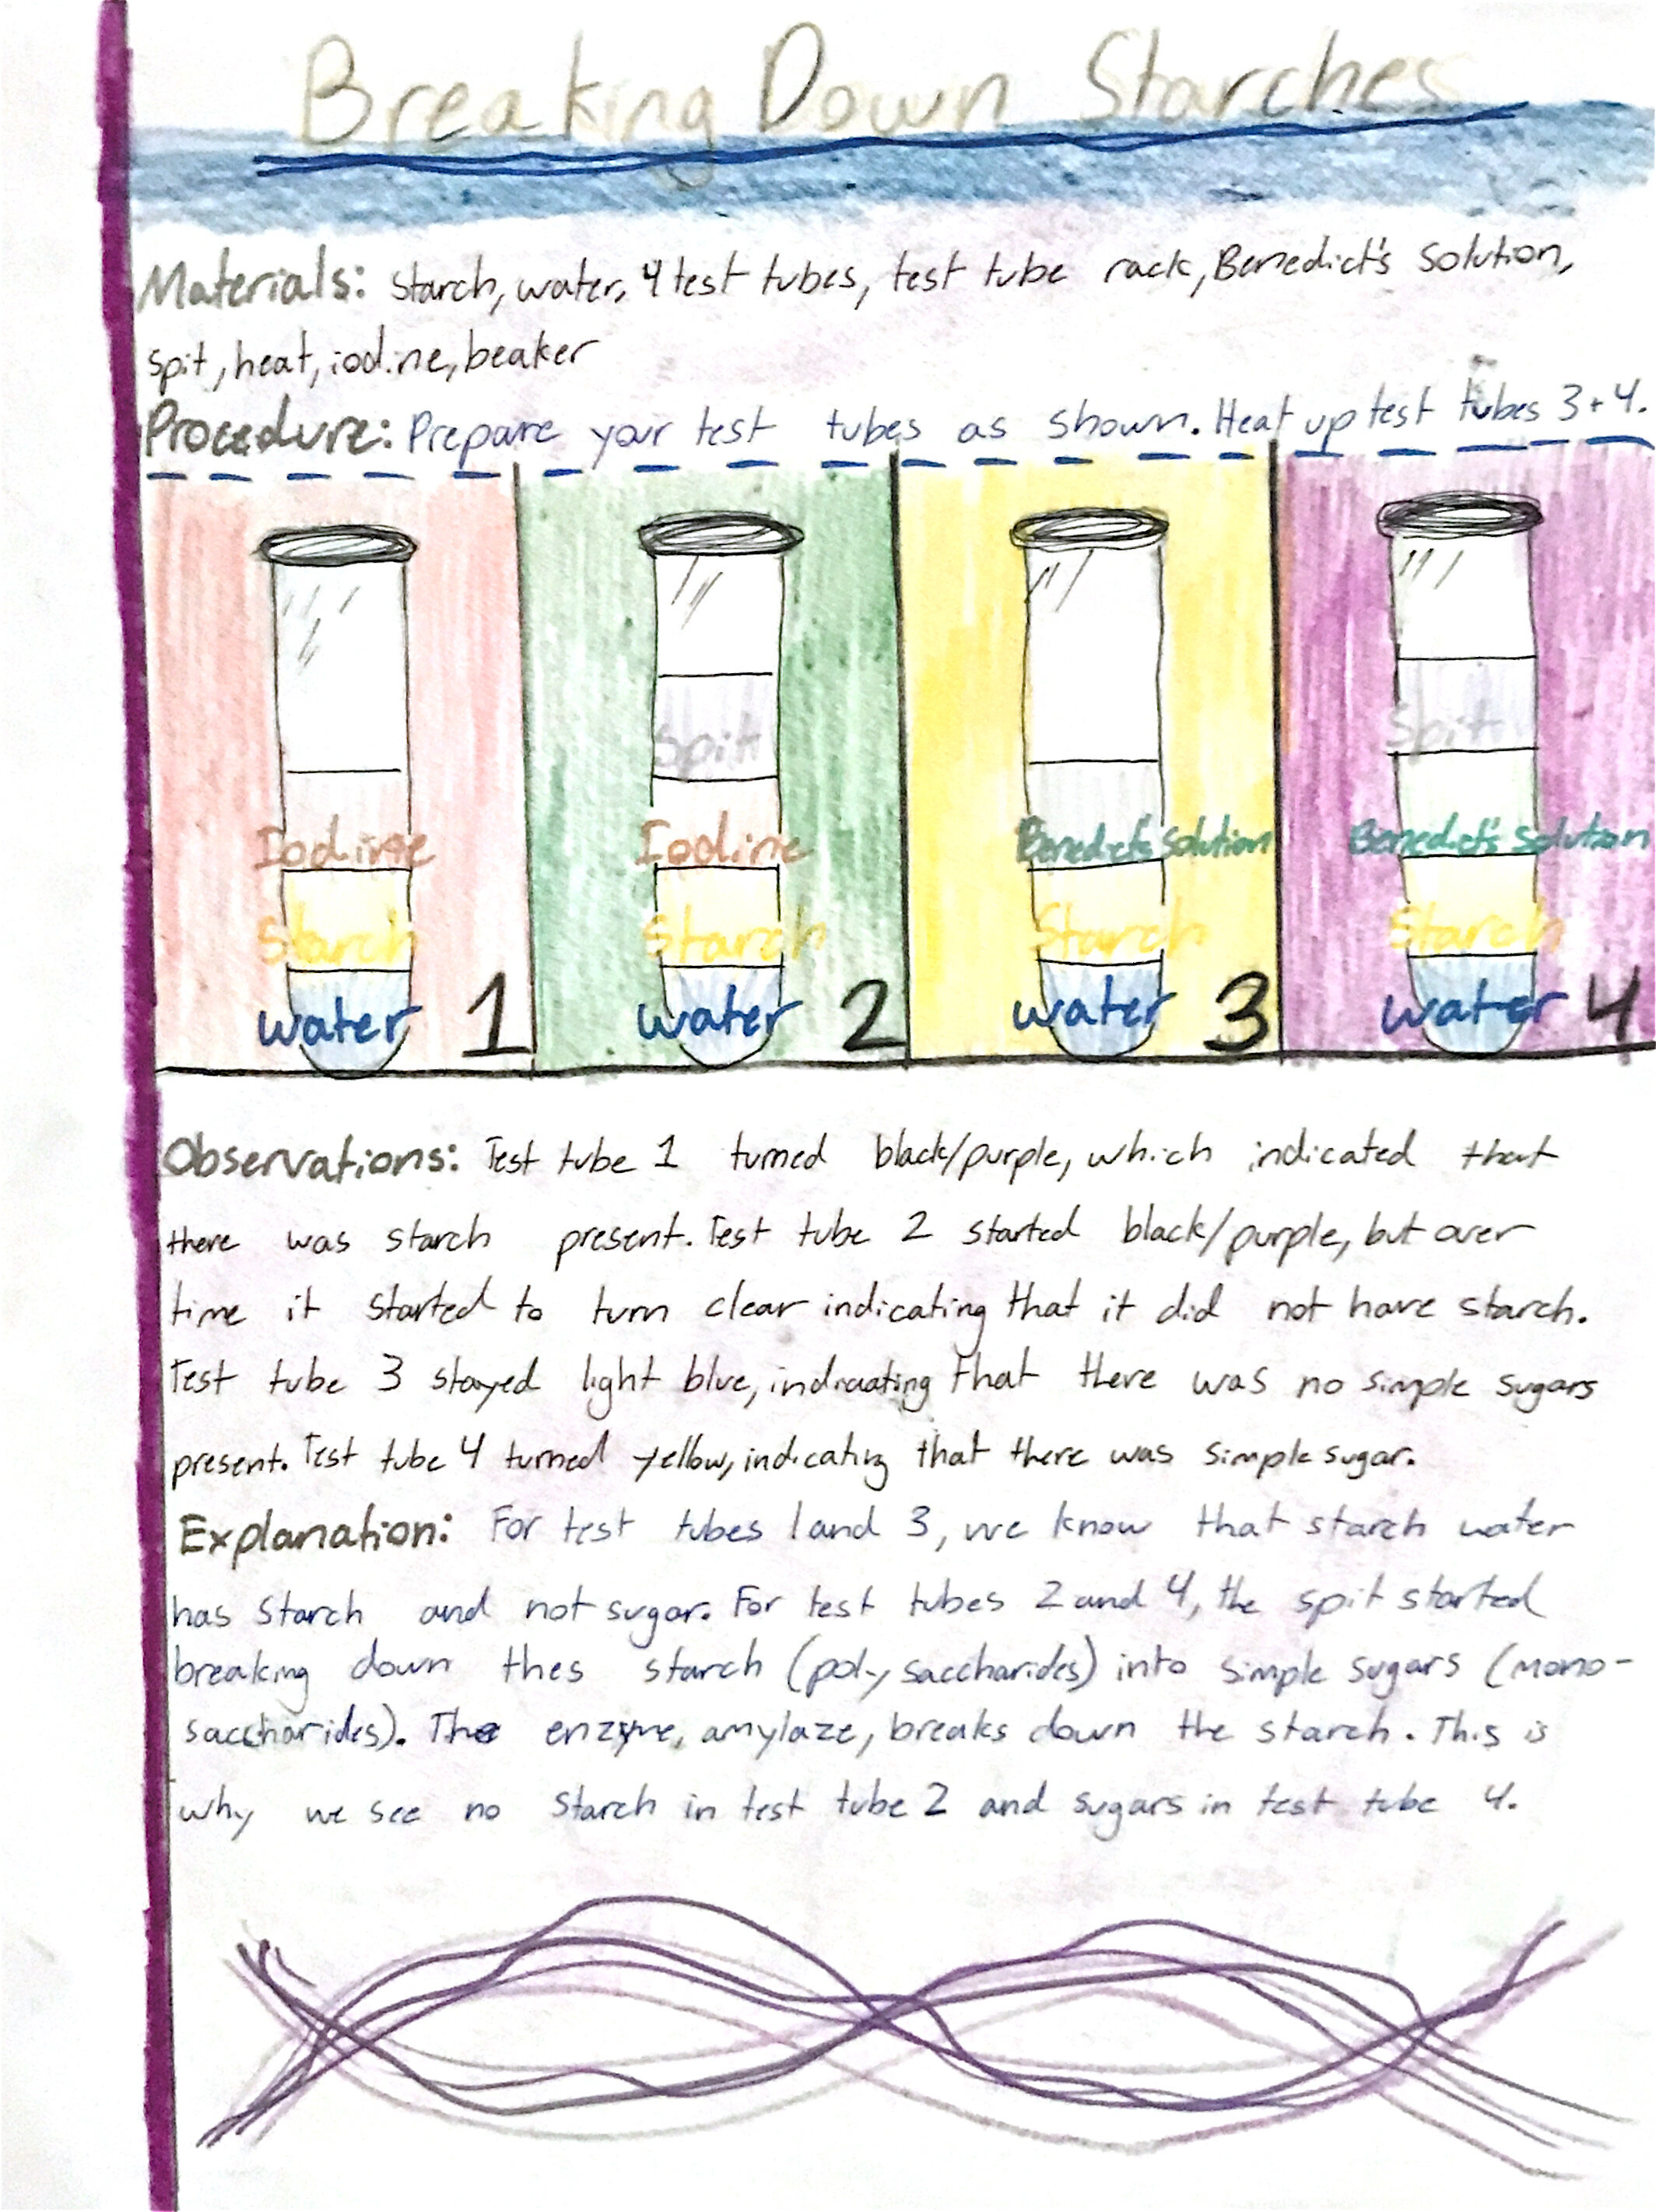 Breaking Down Starches
Materials: Starch, water, 4 test tubes, test tube rack, Benedict's Solution,
spit, heat, iodine, beaker
Procedure: Prepare your test tubes as shown. Heat up test tubes 3+4.
Iodine
Starch
water
1
Spit
Iodine
Starch
water
2
Benedict's Solution
Starch
water
3
Spit
Benedict's Solution
Starch
water
4
Observations: Test tube 1 turned black/purple, which indicated that
there was starch present. Test tube 2 started black/purple, but over
time it started to turn clear indicating that it did not have starch.
Test tube 3 stayed light blue, indicating that there was no simple sugars
present. Test tube 4 turned yellow, indicating that there was simple sugar.
Explanation: For test tubes 1 and 3, we know that starch water
has starch and not sugar. For test tubes 2 and 4, the spit started
breaking down thes starch (polysaccharides) into simple sugars (mono-
saccharides). The enzyme, amylaze, breaks down the starch. This is
why we see no starch in test tube 2 and sugars in test tube 4.